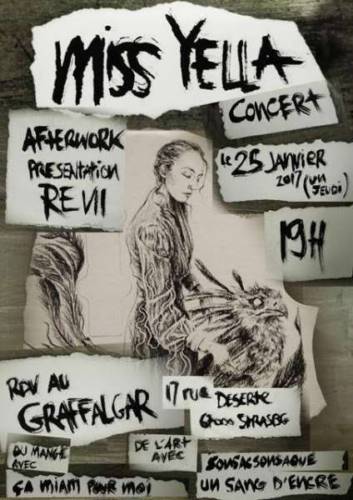 Miss YELLA
CONCERT
AFTERWORK
PRESENTATION
REVII
le 25 JANVIER
2017 (un
JEUDI)
19H
RDV AU
GRAFFALGAR
17 rue DESERTE
67000 STRASBG
OU MANGE
AVEC
ÇA MIAM POUR MOI
DE L'ART
AVEC
UN SANG D'ENCRE